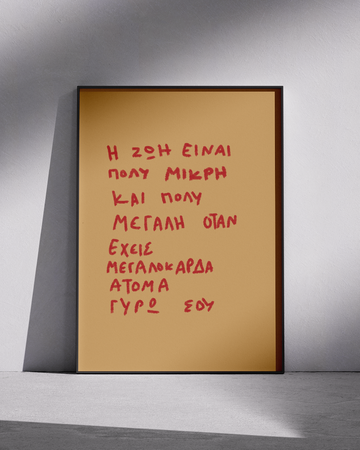 Η ΖΩΗ ΕΙΝΑΙ
ΠΟΛΥ ΜΙΚΡΗ
ΚΑΙ ΠΟΛΥ
ΜΕΓΑΛΗ ΟΤΑΝ
ΕΧΕΙΣ
ΜΕΓΑΛΟΚΑΡΔΑ
ΑΤΟΜΑ
ΓΥΡΩ ΣΟΥ